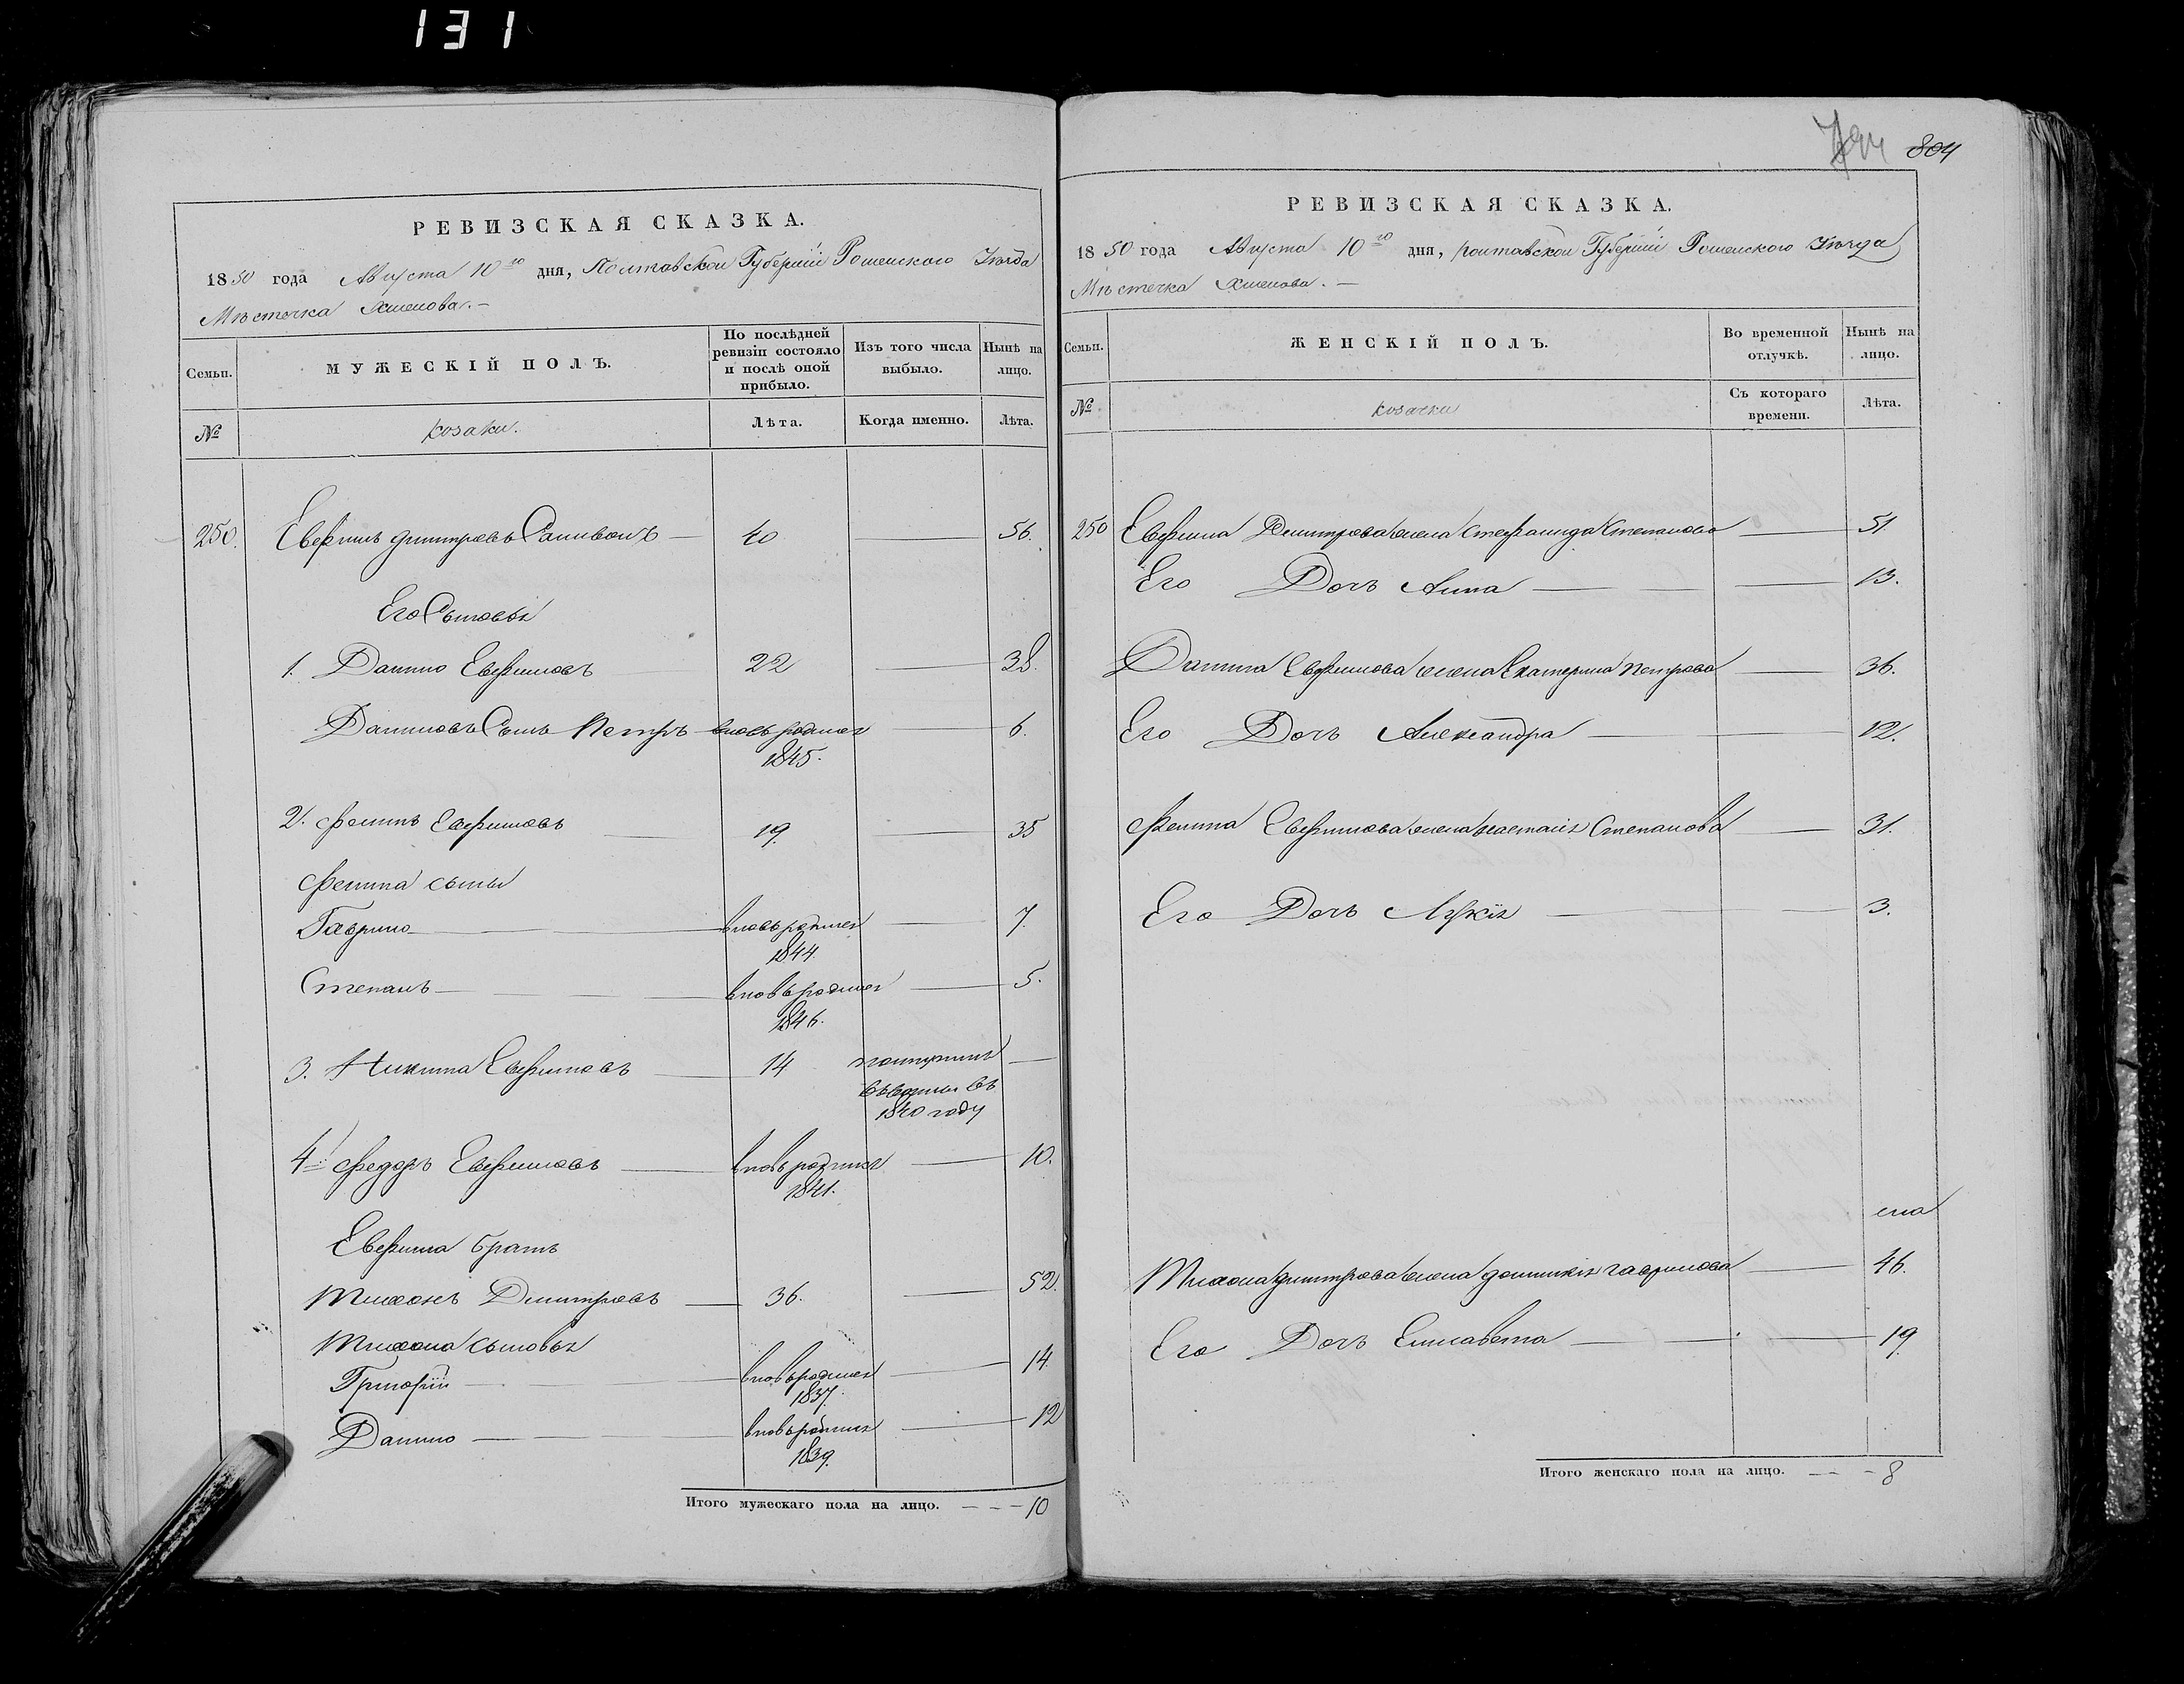 131
794 804
РЕВИЗСКАЯ СКАЗКА.
1850 года Августа 10го дня, Полтавской Губерніи Роменского Уѣзда
Мѣстечка Хмелова.
Семьи.
МУЖЕСКІЙ ПОЛЪ.
По послѣдней ревизіи состояло и послѣ оной прибыло.
Изъ того числа выбыло.
Нынѣ на лицо.
№
козаки.
Лѣта.
Когда именно.
Лѣта.
250. Евфимъ Димитровъ 40 56.
Его Сыновья
1. Данило Евфимовъ 22 38.
Даниловъ Сынъ Петръ вновьродился 6.
1845.
2. Филипъ Евфимовъ 19. 35
Филипа сыны
Гаврило вновьродился 7.
1844.
Степанъ вновьродился 5.
1846.
3. Никита Евфимовъ 14 поступилъ
въ въ
1840 году
4. Федоръ Евфимовъ вновьродился 10.
1841.
Евфима братъ
Тихонъ Димитровъ 36. 52.
Тихона сыновья
Григорій вновьродился 14.
1837.
Данило вновьродился 12
1839.
Итого мужескаго пола на лицо. 10
РЕВИЗСКАЯ СКАЗКА.
1850 года Августа 10го дня, Полтавской Губерніи Роменского Уѣзда
Мѣстечка Хмелова.
Семьи.
ЖЕНСКІЙ ПОЛЪ.
Во временной отлучкѣ.
Нынѣ на лицо.
№
козачки
Съ котораго времени.
Лѣта.
250 Евфима Димитрова жена Степанида Степанова 51.
Его Дочь Анна 13.
Данила Евфимова жена Екатерина Петрова 36.
Его Дочь Александра 12.
Филипа Евфимова жена Настасія Степанова 31.
Его Дочь Лукія 3.
Тихона Димитрова жена Домникія Гаврилова 46.
Его Дочь Елисавета 19
Итого женскаго пола на лицо. 8